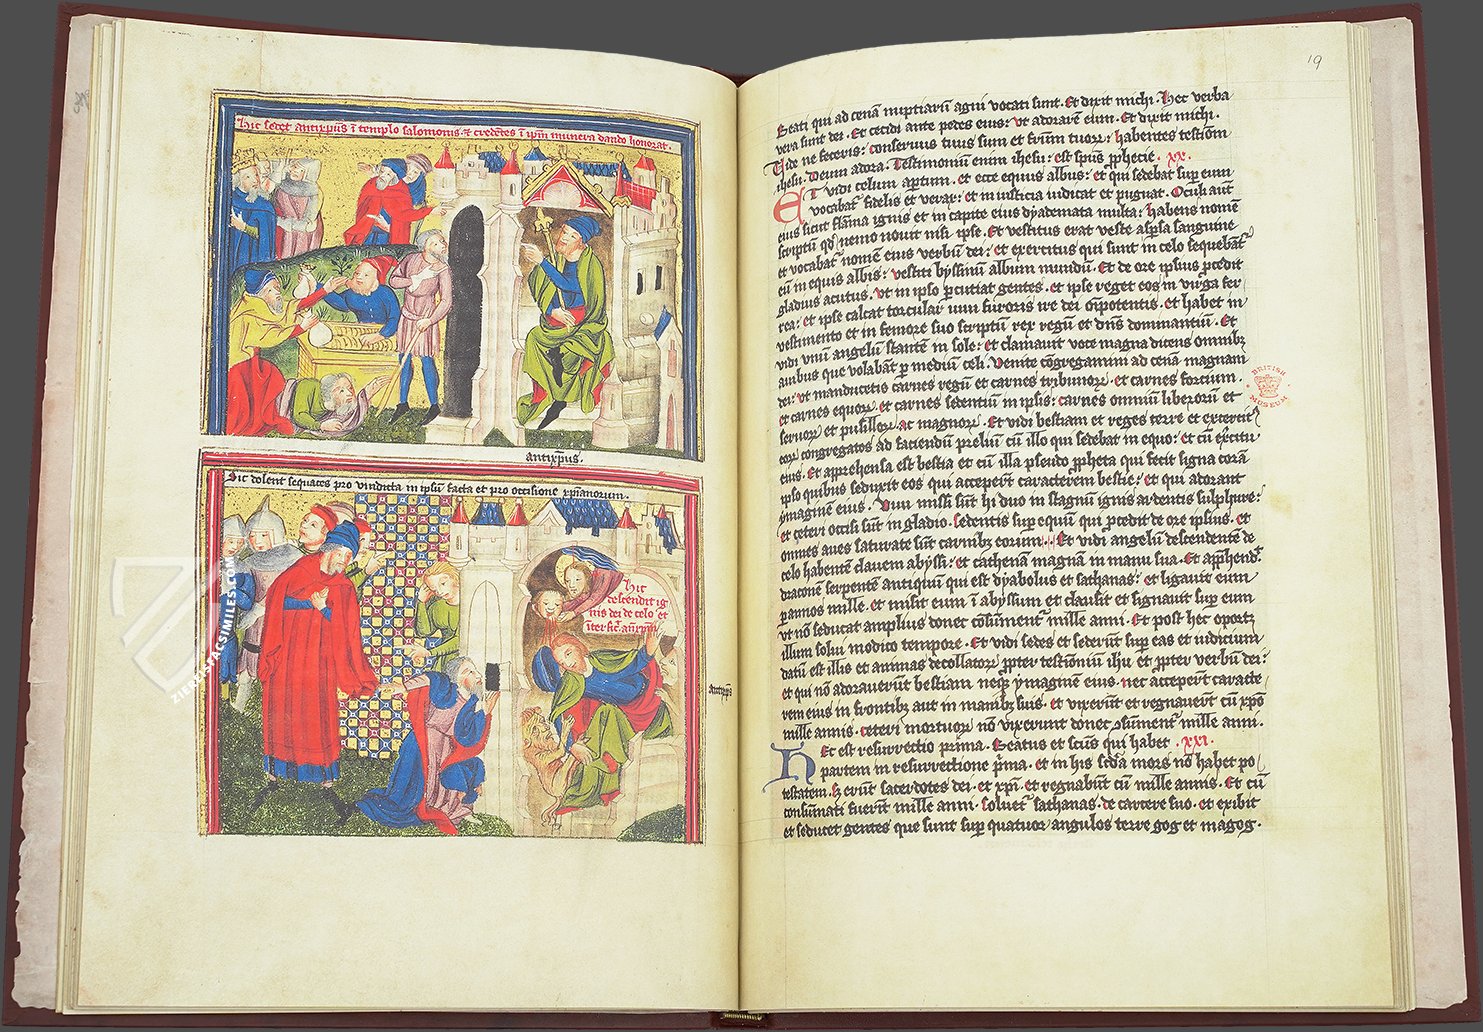 Hic sedet antixpus i templo salomonis et credetes i ipm munera dando honorat.
antixpus.
Sic dolent sequaces pro vindicta in ipsu facta et pro occisione xpianorum.
Hic
descendit ig
nis dei de celo et
iterfic. antixpm
antixps
ZIEREIS FACSIMILES.COM
19
Beati qui ad cena nuptiaru agni vocati sunt. Et dixit michi. Hec verba
vera sunt dei. Et cecidi ante pedes eius: ut adorare eum. Et dixit michi.
Vide ne feceris: conservus tuus sum et frium tuor: habentes testiom
ihesu. Deum adora. Testimoniu enim ihesu: est spus pphecie. xx.
ET vidi celum aptum. et ecce equus albus: et qui sedebat sup eum
vocabat fidelis et verax: et in iusticia iudicat et pugnat. Oculi aut
eius sicut flama ignis et in capite eius dyademata multa: habens nome
scriptu qd nemo novit nisi ipse. Et vestitus erat veste aspsa sanguine
et vocabat nome eius verbu dei: et exercitus qui sunt in celo sequebat
eu in equis albis: vestiti byssinu album mundu. Et de ore ipsius pcedit
gladius acutus. ut in ipso pcutiat gentes. et ipse reget eos in virga fer
rea: et ipse calcat torcular vini furoris ire dei oipotentis. et habet in
vestimento et in femore suo scriptu rex regu et dns dominantiu. Et
vidi unu angelu stante in sole: et clamavit voce magna dicens omnib
avibus que volabat p mediu celi. Venite cogregamini ad cena magnam
dei: ut manducetis carnes regu et carnes tribunor. et carnes forcium.
et carnes equor. et carnes sedentiu in ipsis: carnes omniu liberoru et
servor et pusillor. ac magnor. Et vidi bestiam et reges terre et exercit
eor congregatos ad faciendu preliu cu illo qui sedebat in equo: et cu exercitu
eius. Et apprehensa est bestia et cu illa pseudo ppheta qui fecit signa cora
ipso quibus seduxit eos qui acceperut caracterem bestie: et qui adorant
ymagine eius. Vivi missi sut hi duo in stagnu ignis ardentis sulphure:
et ceteri occisi sut in gladio. sedentis sup equu qui pcedit de ore ipsius. et
omnes aves saturate sut carnib eorum. Et vidi angelu descendente de
celo habente clavem abyssi: et cathena magna in manu sua. Et apphend
dracone serpente antiquu qui est dyabolus et sathanas: et ligavit eum
p annos mille. et misit eum i abyssum et clausit et signavit sup eum
ut no seducat amplius donec cosument mille anni. Et post hec oport
illum solvi modico tempore. Et vidi sedes et sederut sup eas et iudicium
datu est illis et animas decollator ppter testioniu ihu et ppter verbu dei:
et qui no adoraverut bestiam neq ymagine eius. nec acceperut caracte
rem eius in frontib aut in manib suis. et vixerut et regnaverut cu xpo
mille annis. ceteri mortuor no vixerunt donec cosument mille anni.
Hec est resurrectio prima. Beatus et scus qui habet xxi.
partem in resurrectione pma. et in his seda mors no habet po
testatem. sz erunt sacerdotes dei. et xpi. et regnabut cu mille annis. Et cu
consumati fuerut mille anni. solvet sathanas de carcere suo. et exibit
et seducet gentes que sunt sup quatuor angulos terre gog et magog.
BRITISH
MUSEUM